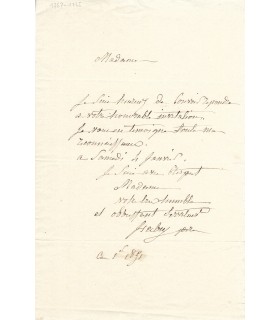 Madame
Je suis heureux de pouvoir répondre
a votre honorable invitation.
Je vous en temoigne toute ma
reconnaissance.
a Samedi 4 Janvier.
Je suis avec respect
Madame
votre très humble
et obeissant serviteur
Ce 1er